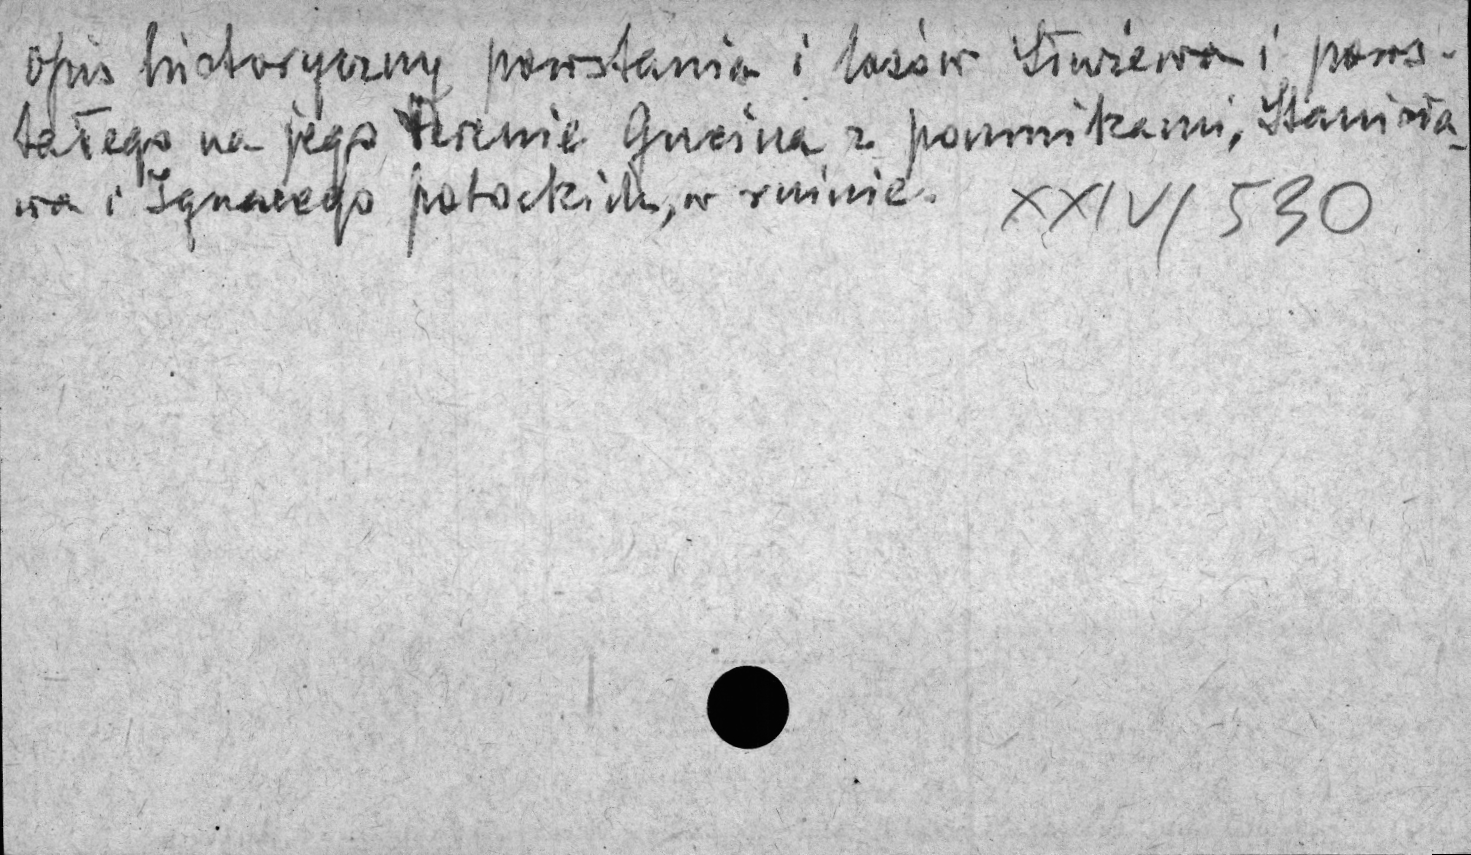 opis historyczny powstania i losów Służewa i pows-
tałego na jego terenie Gucina z pomnikami, Stanisła-
wa i Ignacego potockich, w ruinie. XXIV/530